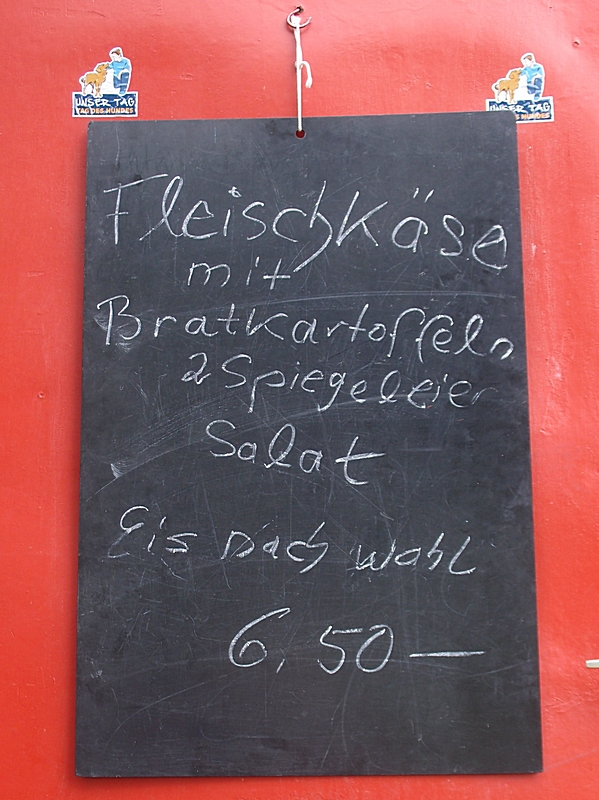 UNSER TAG
TAG DES HUNDES
UNSER TAG
TAG DES HUNDES
Fleischkäse
mit
Bratkartoffeln
2 Spiegeleier
Salat
Eis nach Wahl
6,50—